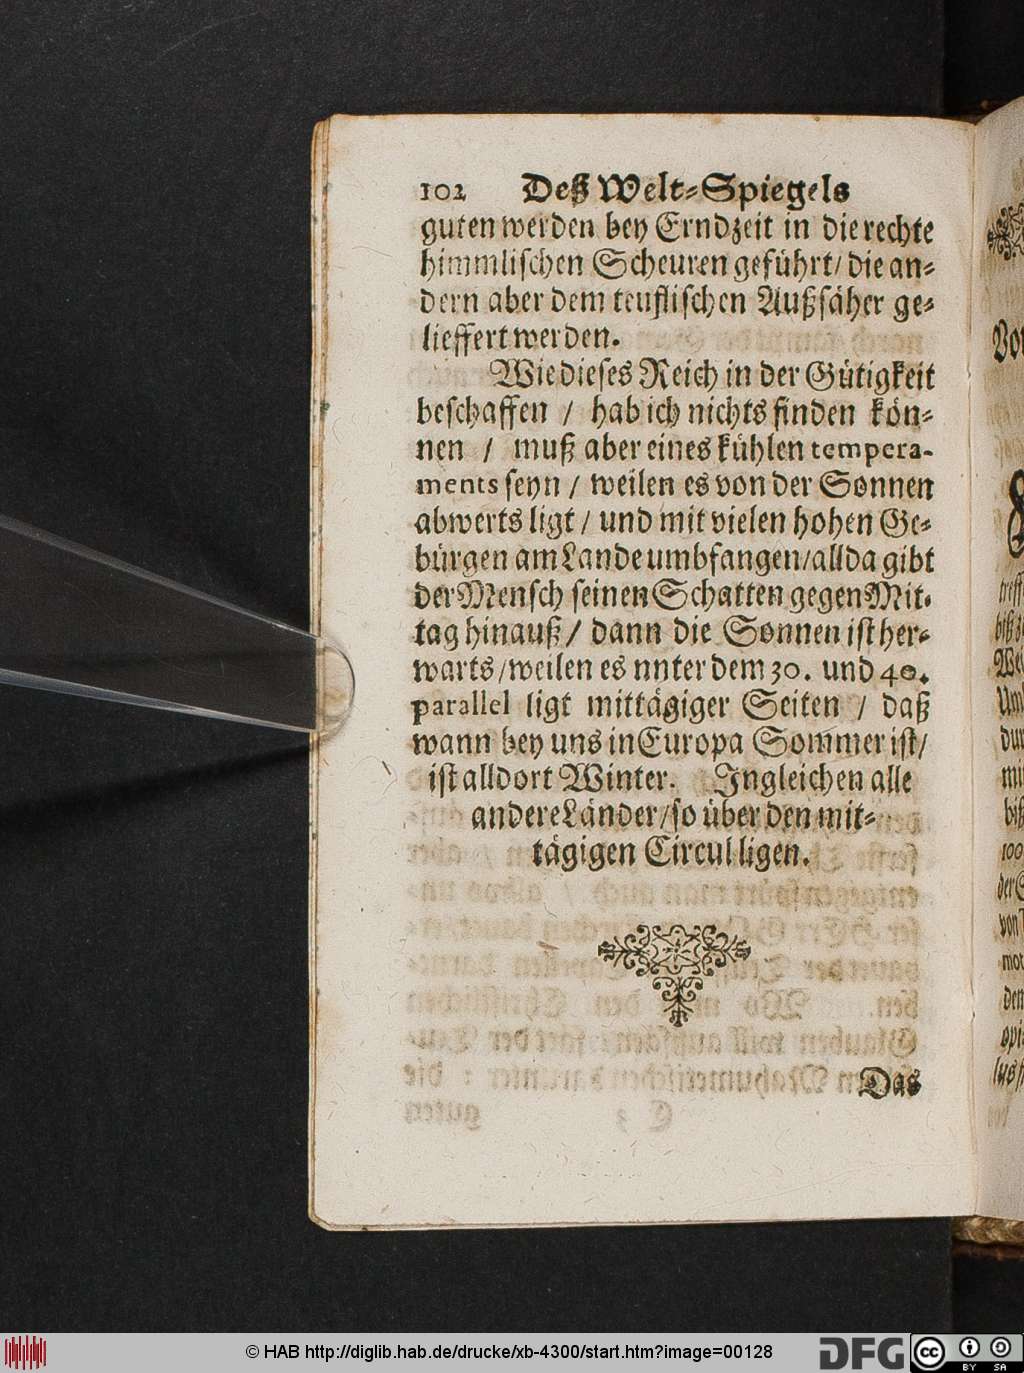 102 Deß Welt-Spiegels
guten werden bey Erndzeit in die rechte
himmlischen Scheuren geführt/ die an-
dern aber dem teuflischen Außsäher ge-
lieffert werden.
Wie dieses Reich in der Gütigkeit
beschaffen / hab ich nichts finden kön-
nen / muß aber eines kühlen tempera-
ments seyn / weilen es von der Sonnen
abwerts ligt / und mit vielen hohen Ge-
bürgen am Lande umbfangen/allda gibt
der Mensch seinen Schatten gegen Mit-
tag hinauß / dann die Sonnen ist her-
warts/weilen es nnter dem 30. und 40.
parallel ligt mittägiger Seiten / daß
wann bey uns in Europa Sommer ist/
ist alldort Winter. Ingleichen alle
andere Länder/so über den mit-
tägigen Circul ligen.
Das
© HAB http://diglib.hab.de/drucke/xb-4300/start.htm?image=00128
DFG
cc
BY SA